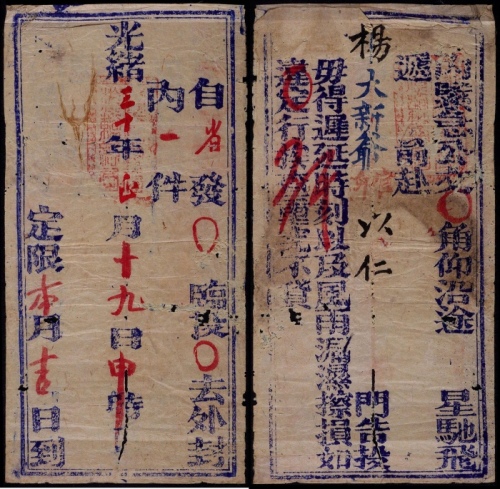 自省發〇臨投〇去外封
內一件
光緒三十年正月十九日申時
定限本月日到
緊急公文〇角仰沿途 星馳飛
遞 前赴
楊大新爺 以仁 門告投
毋得遲延時刻以及風雨濕擦損如
違定行不貸